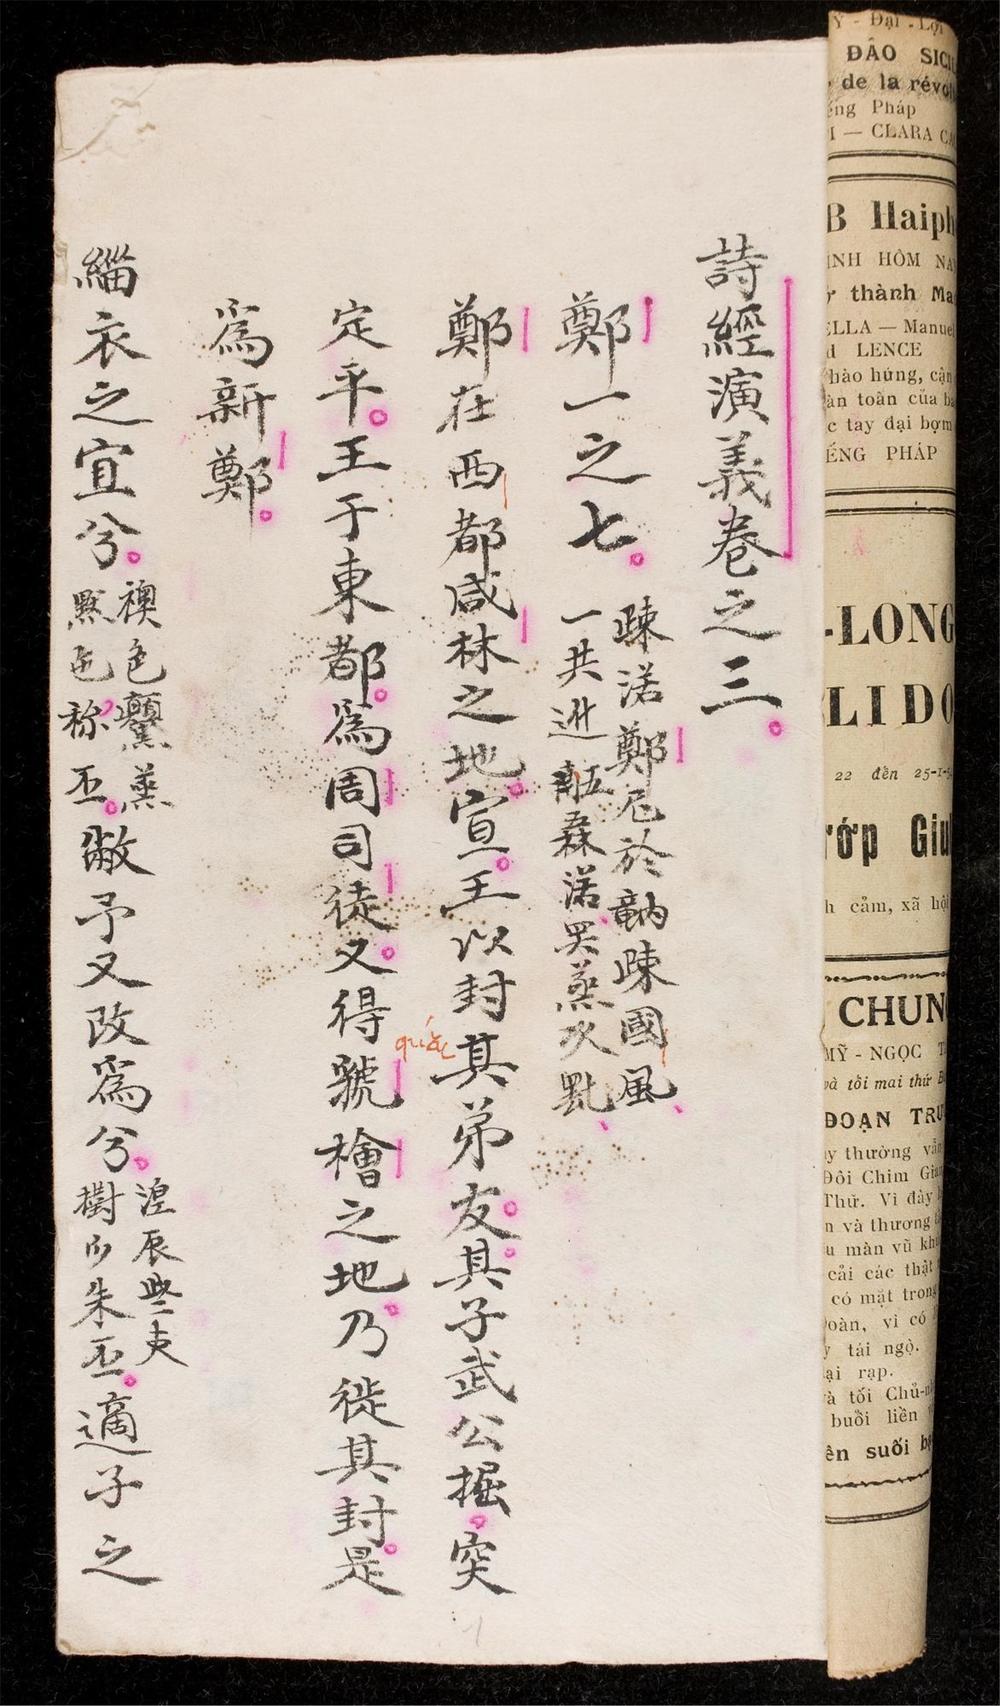 詩經演義卷之三
鄭一之七
疎渃鄭尼於𥪝疎國風
一共進𨅸渃哭蒸次𠤩
鄭在西都咸林之地宣王以封其弟友其子武公掘突
定平王于東都爲周司徒又得虢檜之地乃徙其封是
quắc
爲新鄭
緇衣之宜兮
襖色蒸
默色称丕
敝予又改爲兮
涅辰些吏
朱丕
適子之
Y - Đại - Lợi
ĐẢO SICI
de la révol
ếng Pháp
I — CLARA CA
B Haiph
INH HÔM NA
thành Ma
ELLA — Manuel
d LENCE
hào húng, cận
àn toàn của ba
c tay đại bợm
ẾNG PHÁP
-LONG
LIDO
22 đến 25-1-5
ướp Giu
h cảm, xã hội
CHUN
MỸ - NGỌC T
và tối mai thứ B
ĐOẠN TRƯ
y thường vẫn
Đôi Chim Gi
Thứ. Vì đây
n và thương
u màn vũ kh
cải các thật
có mặt trong
oàn, vì có
y tái ngộ.
ại rạp.
và tối Chủ-n
buổi liền
ên suối b